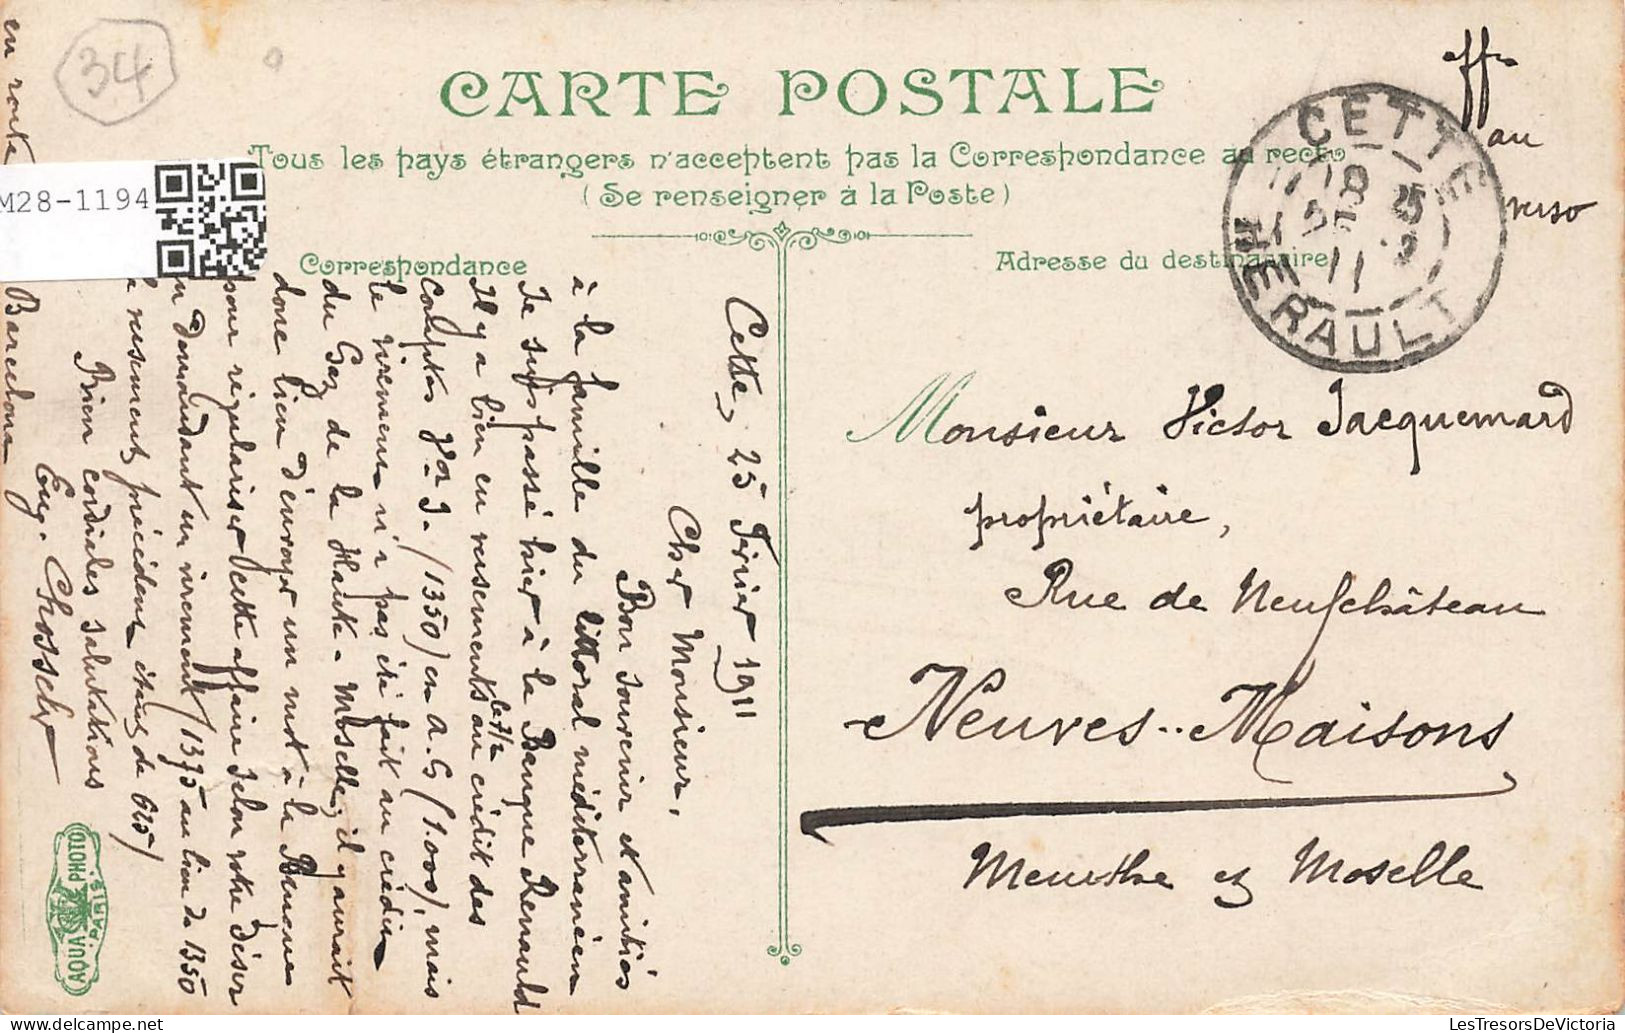 CARTE POSTALE
Tous les pays étrangers n'acceptent pas la Correspondance au recto
(Se renseigner à la Poste)
Correspondance
Adresse du destinataire
34
M28-1194
CETTE
HERAULT
18
25 2
11
aff
au
verso
Monsieur Victor Jacquemard
propriétaire,
Rue de Neufchâteau
Neuves-Maisons
Meurthe et Moselle
Cette, 25 Février 1911
Cher Monsieur,
Bon souvenir et amitiés
à la famille du littoral méditerranéen
Je suis passé hier à la Banque Renauld
Il y a bien eu versements au crédit des
comptes J. (1350) en A.G (1.000), mais
le virement n'a pas été fait au crédit
du Gaz de la Haute-Moselle, il y aurait
donc lieu d'envoyer un mot à la Banque
pour régulariser cette affaire selon votre désir
en demandant un virement (1375 au lieu de 1350
le versement précédent étant de 625)
Bien cordiales salutations
Eug.
en route
Barcelona
AQUA PHOTO
PARIS
LesTresorsDeVictoria